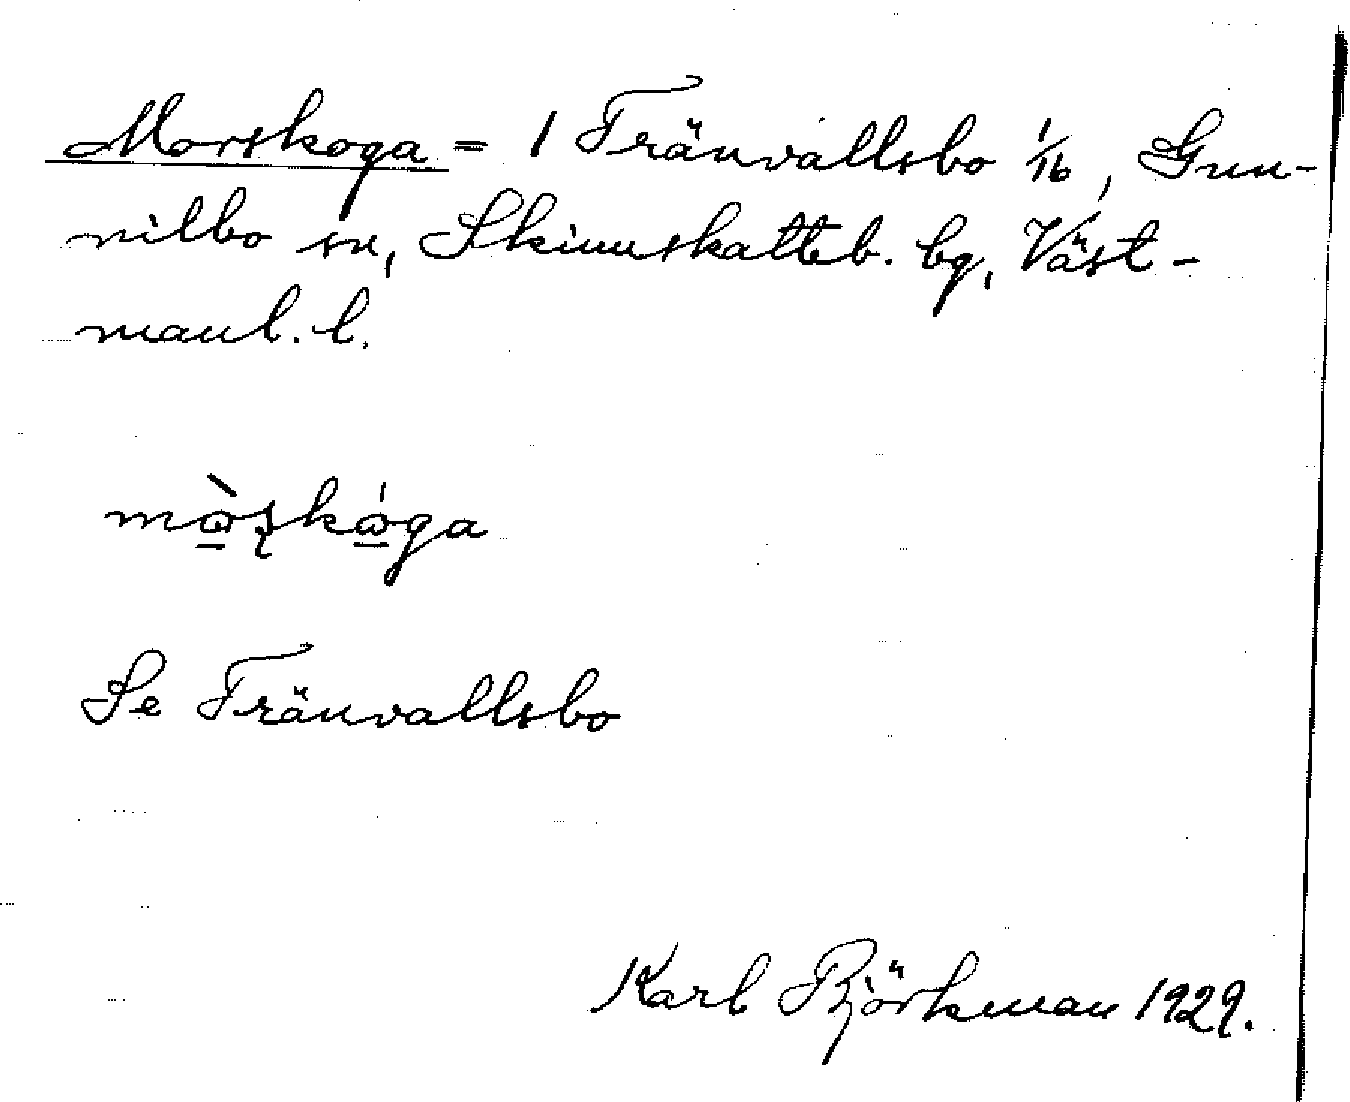 Morskoga = 1 Tränvallsbo 1/16, Gun-
nilbo sn, Skinnskatteb. bg, Väst-
manl. l.
mò̠ʂkó̠ga
Se Tränvallsbo
Karl Björkman 1929.